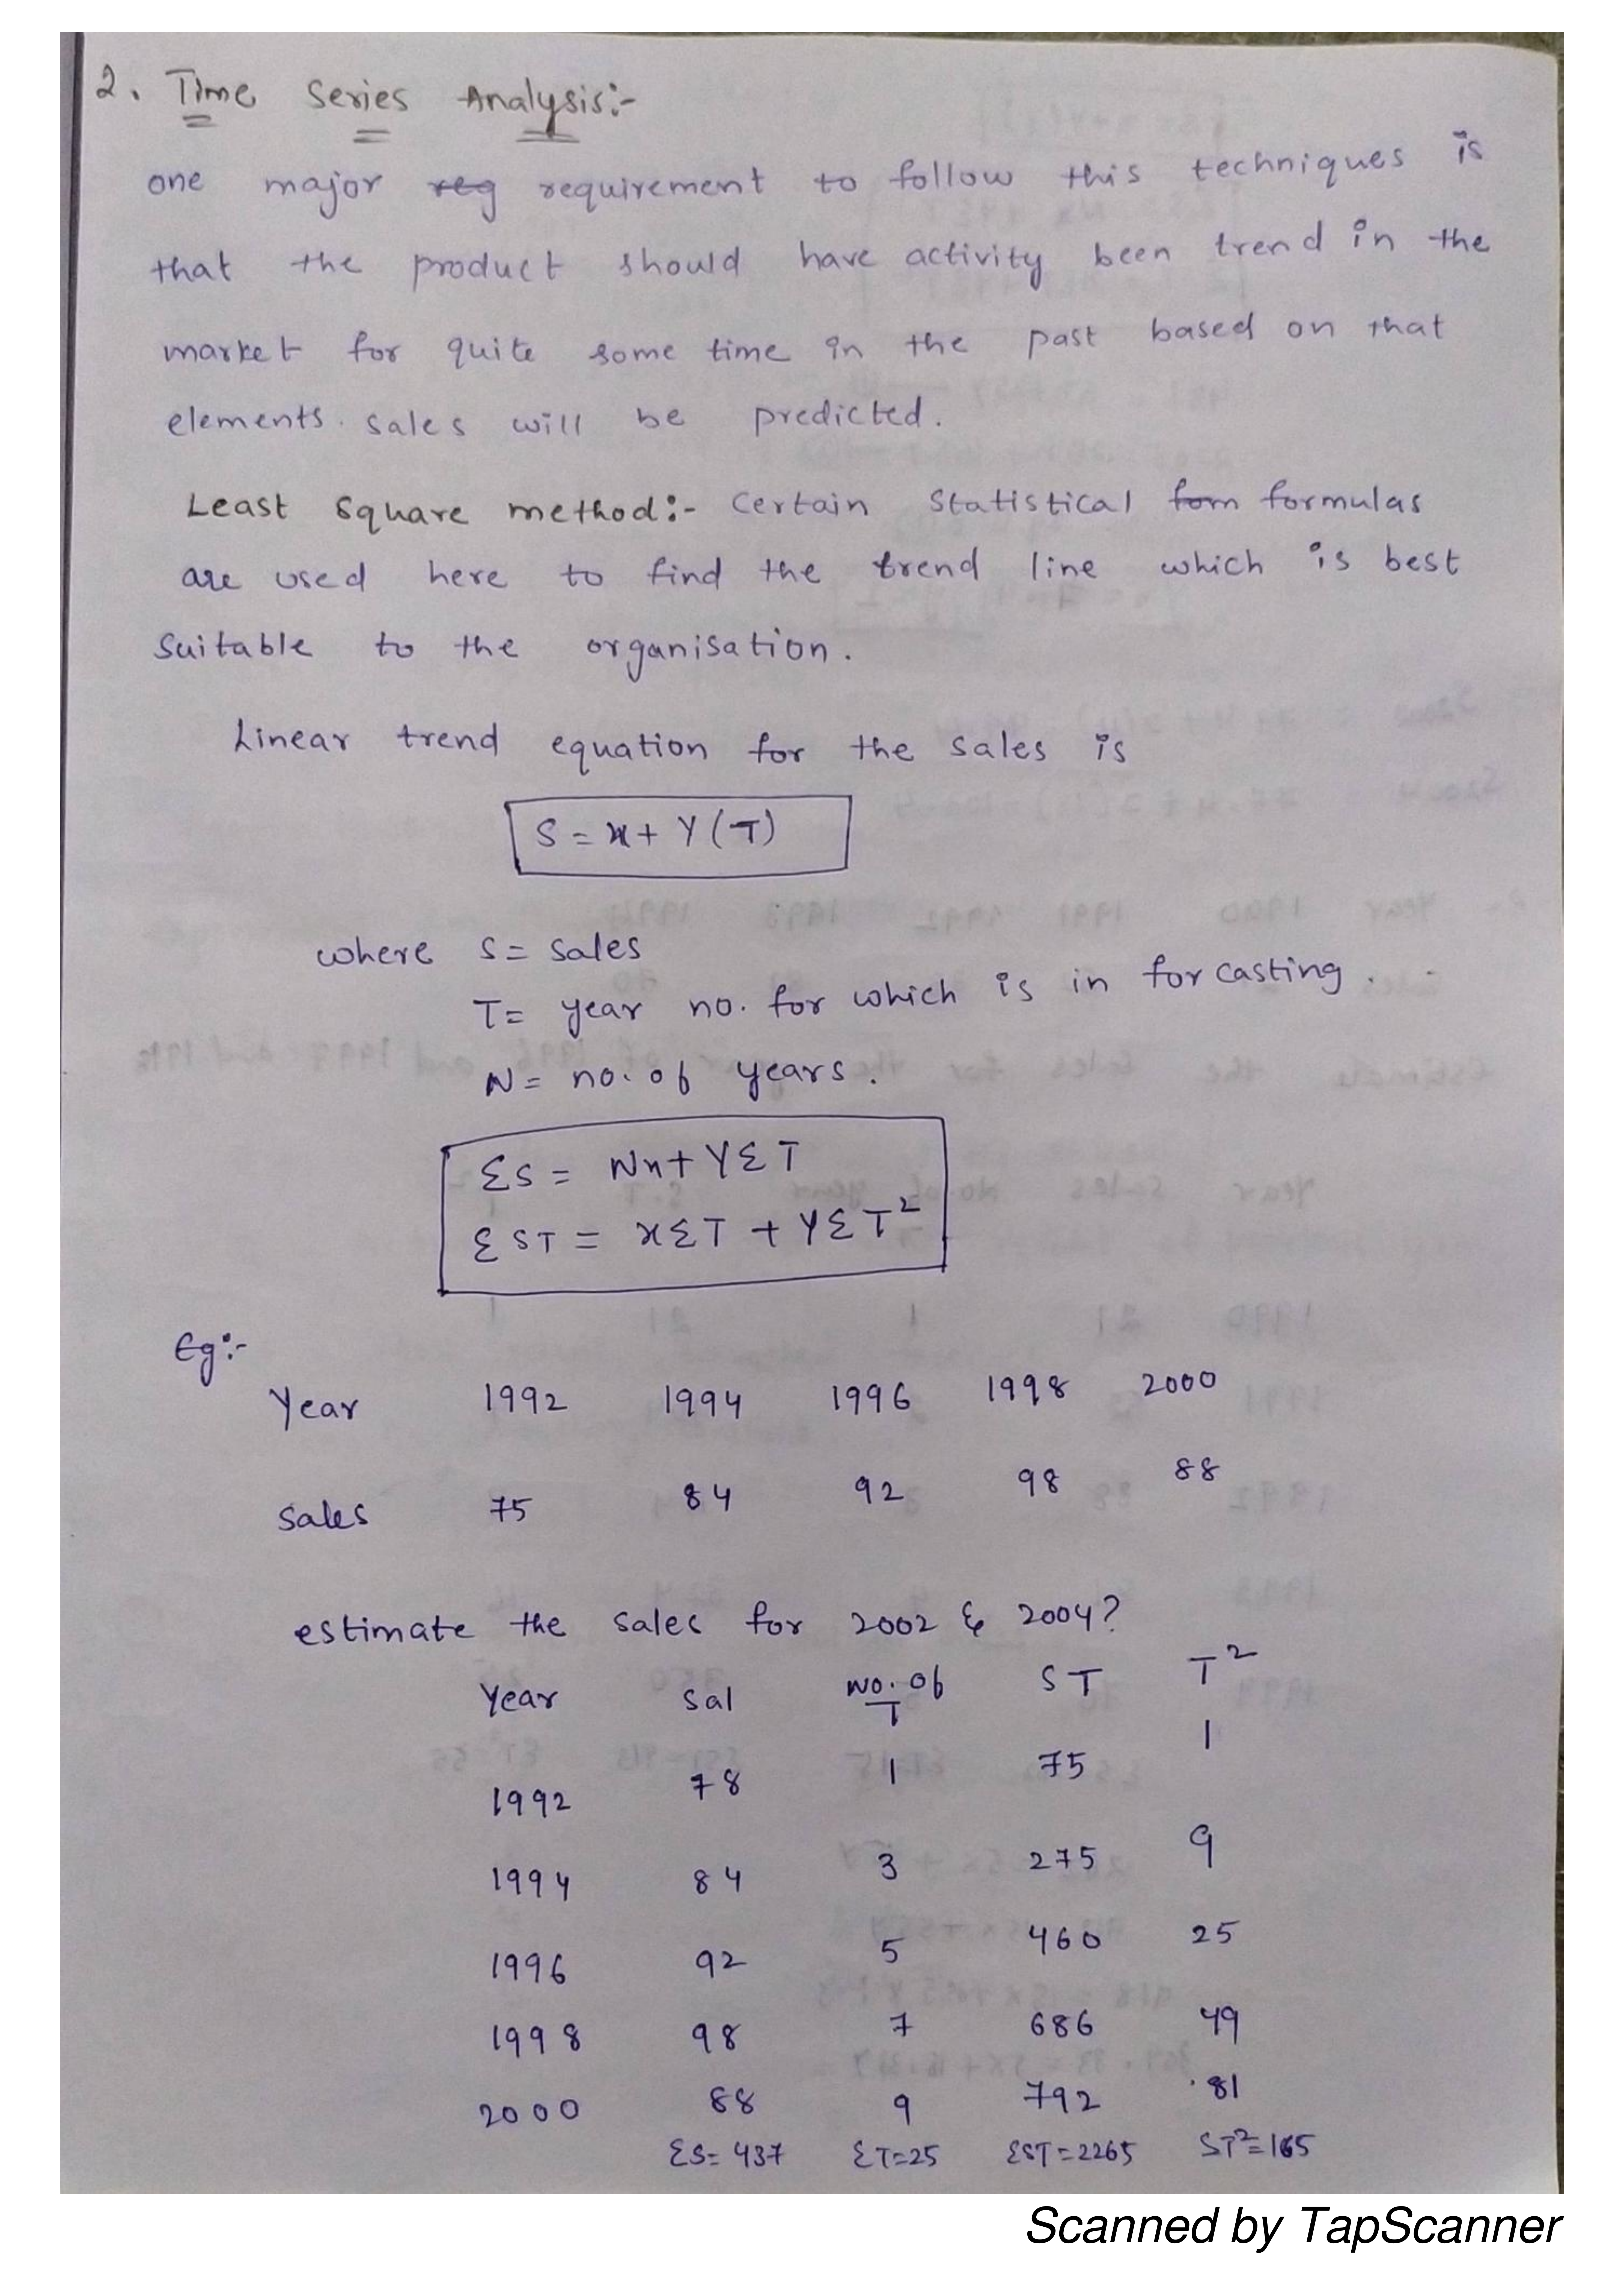 2. Time Series Analysis:-
one major reg requirement to follow this techniques is
that the product should have activity been trend in the
market for quite some time in the past based on that
elements. sales will be predicted.
Least Square method:- Certain Statistical fom formulas
are used here to find the trend line which is best
Suitable to the organisation.
Linear trend equation for the sales is
S = x + Y (T)
where S = Sales
T = year no. for which is in forcasting.
N = no. of years.
ΣS = Nx + YΣT
ΣST = xΣT + YΣT²
Eg:-
Year 1992 1994 1996 1998 2000
Sales 75 84 92 98 88
estimate the sales for 2002 & 2004?
Year Sal No. of T ST T²
1992 78 1 75 1
1994 84 3 275 9
1996 92 5 460 25
1998 98 7 686 49
2000 88 9 792 81
ΣS = 437 ΣT = 25 ΣST = 2265 ST² = 165
Scanned by TapScanner